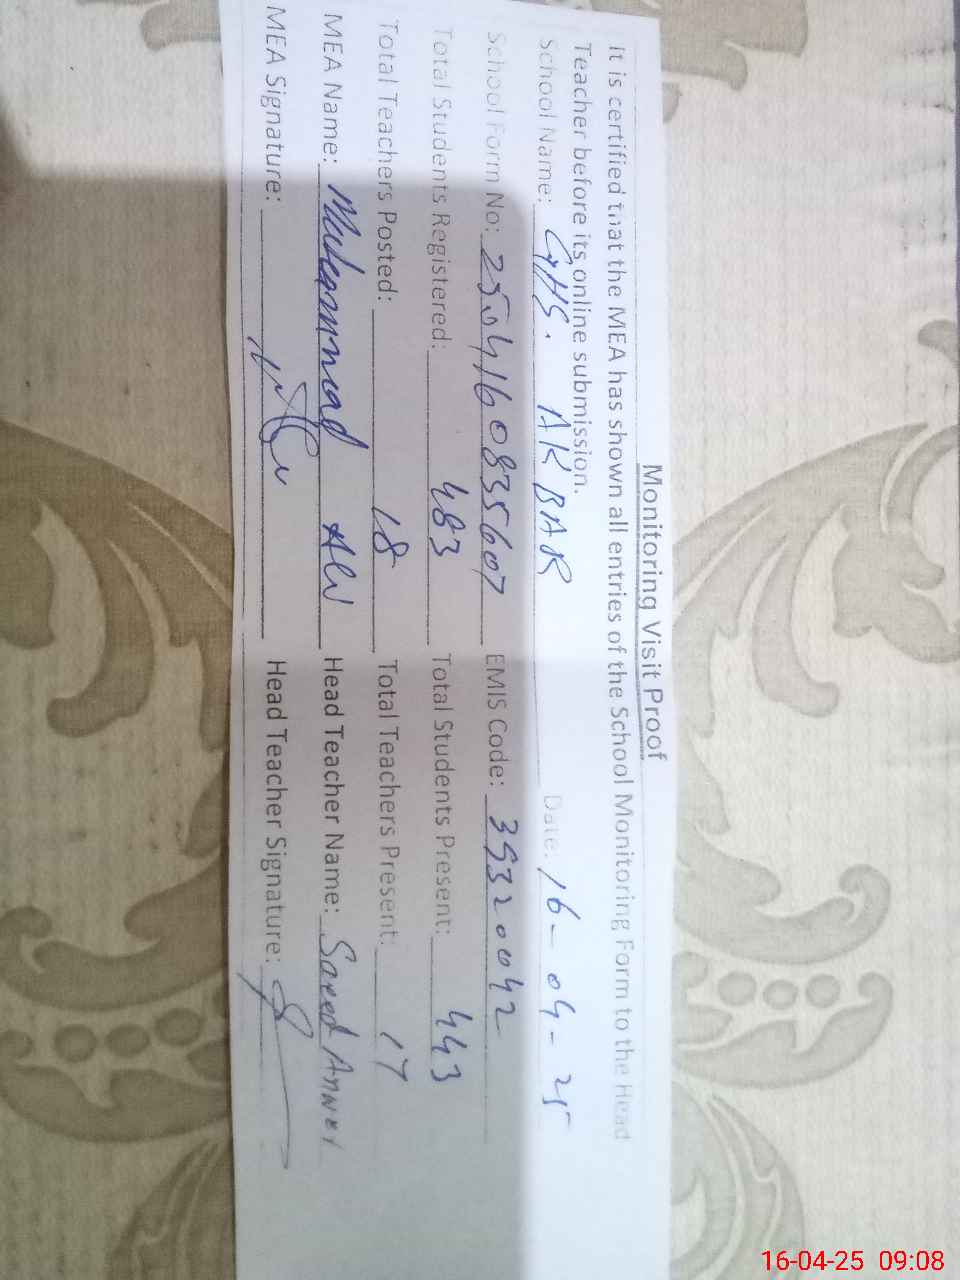 Monitoring Visit Proof
It is certified that the MEA has shown all entries of the School Monitoring Form to the Head
Teacher before its online submission.
School Name: GHS. AKBAR Date: 16-04-25
School Form No: 2504160835607 EMIS Code: 39320042
Total Students Registered: 483 Total Students Present: 443
Total Teachers Posted: 18 Total Teachers Present: 17
MEA Name: Muhammad Ali Head Teacher Name: Saeed Anwer
MEA Signature: Head Teacher Signature:
16-04-25 09:08